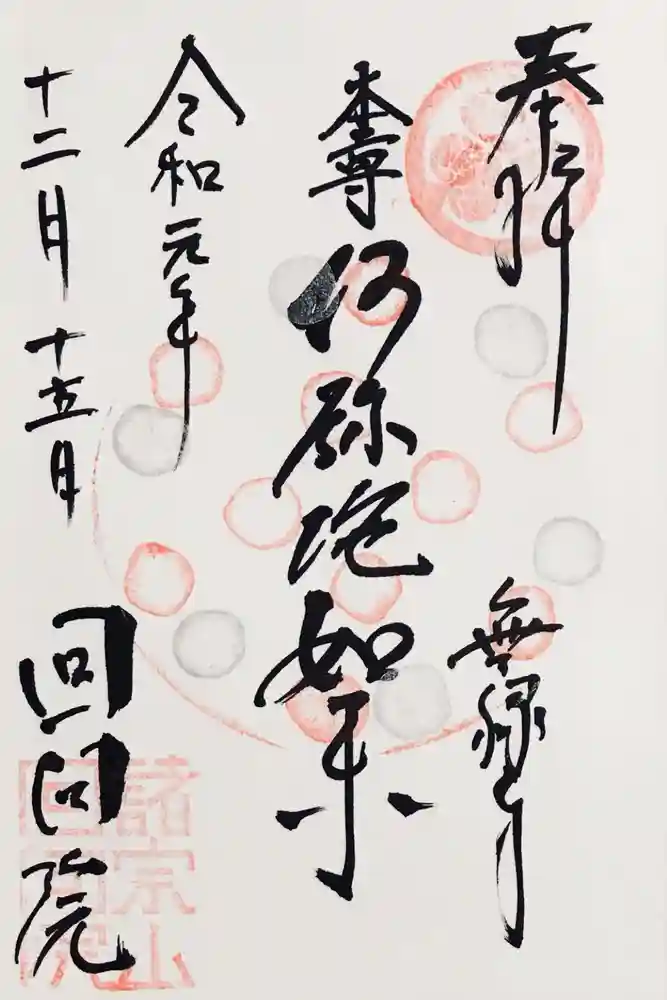 奉拝
無縁寺
本尊阿弥陀如来
令和元年
十二月十五日
回向院
諸宗山
回向院